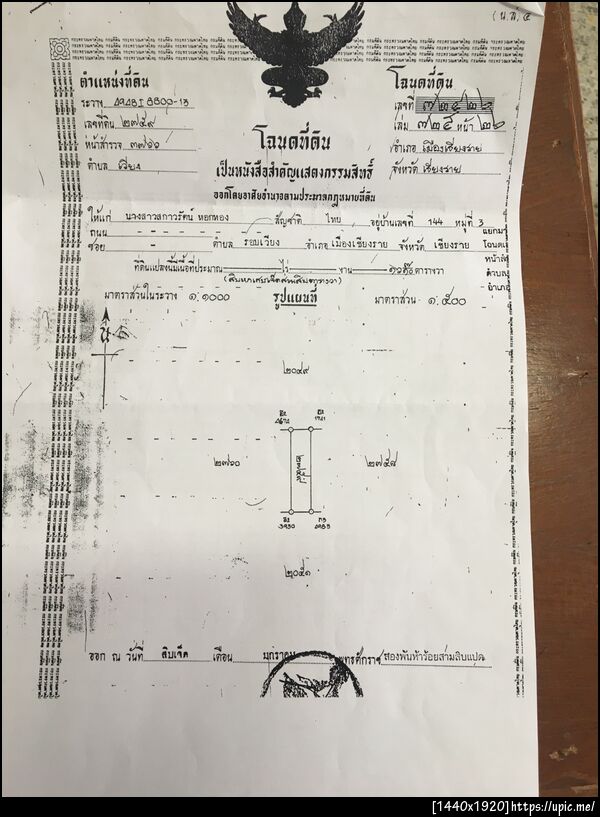 (น.ส.) ๔
ตำแหน่งที่ดิน
ระวาง 4948 I 8800-13
เลขที่ดิน ๒๗๕๙
หน้าสำรวจ ๓๗๖๖
ตำบล เวียง
โฉนดที่ดิน
เลขที่
เล่ม ๓๒๕ หน้า ๒๖
อำเภอ เมืองเชียงราย
จังหวัด เชียงราย
โฉนดที่ดิน
เป็นหนังสือสำคัญแสดงกรรมสิทธิ์
ออกโดยอาศัยอำนาจตามประมวลกฎหมายที่ดิน
ให้แก่ นางสาวสกาวรัตน์ หอกทอง สัญชาติ ไทย อยู่บ้านเลขที่ 144 หมู่ที่ 3
ถนน - - - - - ตำบล รอบเวียง อำเภอ เมืองเชียงราย จังหวัด เชียงราย
ซอย
แยกมา
โฉนดเ
หน้าสำ
ตำบล
อำเภอ
ที่ดินแปลงนี้มีเนื้อที่ประมาณ ไร่ งาน ตารางวา
มาตราส่วนในระวาง ๑:๑๐๐๐ รูปแผนที่ มาตราส่วน ๑:๕๐๐
น
๒๐๔๙
๒๗๖๐
๒๗๕๗
๒๐๕๑
ออก ณ วันที่ สิบเจ็ด เดือน มกราคม พุทธศักราช สองพันห้าร้อยสามสิบแปด
[1440x1920]https://upic.me/